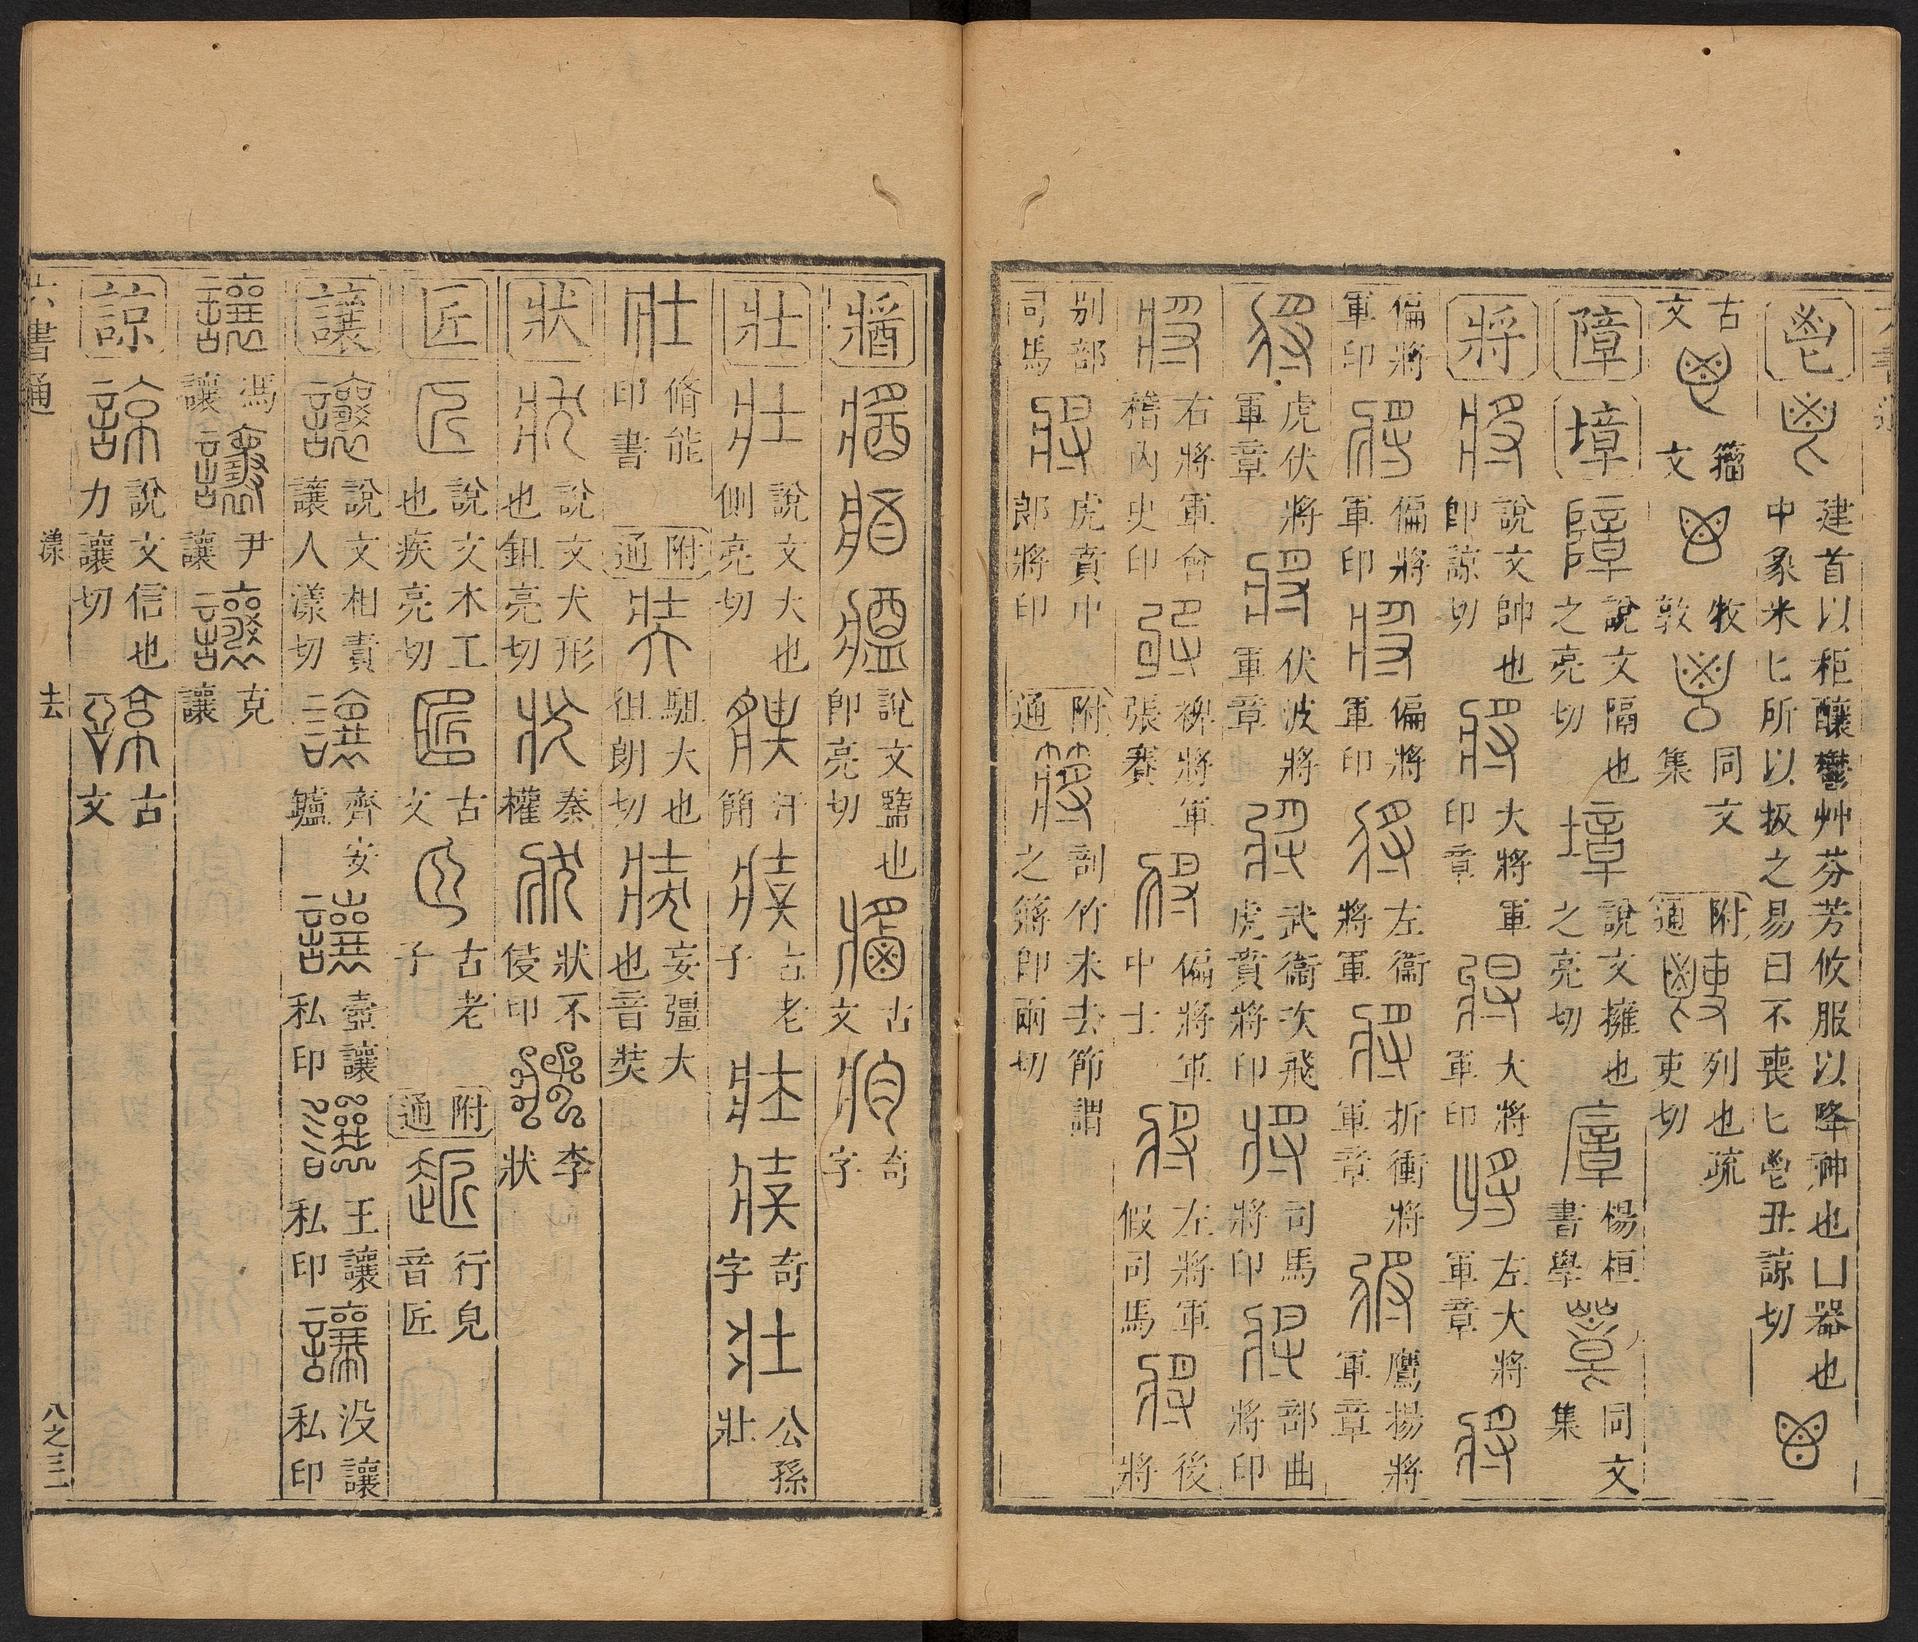 鬯 建首以秬釀鬱艸芬芳攸服以降神也凵器也中象米匕所以扱之易曰不喪匕鬯丑諒切
古文 籀文 牧敦 同文集 附通 列也疏吏切
障 墇 說文隔也之亮切 說文擁也之亮切 楊桓書學 同文集
將 說文帥也即諒切 大將軍印章 大將軍印 左大將軍章
偏將軍印 偏將軍印 偏將軍印 左衞將軍 折衝將軍章 鷹揚將軍章
虎伏將軍章 伏波將軍章 武衞次飛虎賁將印 司馬將印 部曲將印
右將軍會稽內史印 裨將軍張賽 偏將軍中士 左將軍假司馬 後將
別部司馬 虎賁中郎將印 附通 剖竹未去節謂之䉃即兩切
醬 說文盬也即亮切 古文 奇字
壯 說文大也側亮切 汗簡 古老子 奇字 公孫壯
脩能印書 附通 駔大也徂朗切 妄彊大也音奘
狀 說文犬形也鉏亮切 秦權 狀不侵印 李狀
匠 說文木工也疾亮切 古文 古老子 附通 行皃音匠
讓 說文相責讓人漾切 齊安鑪 壺讓私印 王讓私印 沒讓私印
馮讓 尹讓 克讓
諒 說文信也力讓切 古文
六書通 漾 去 八之三